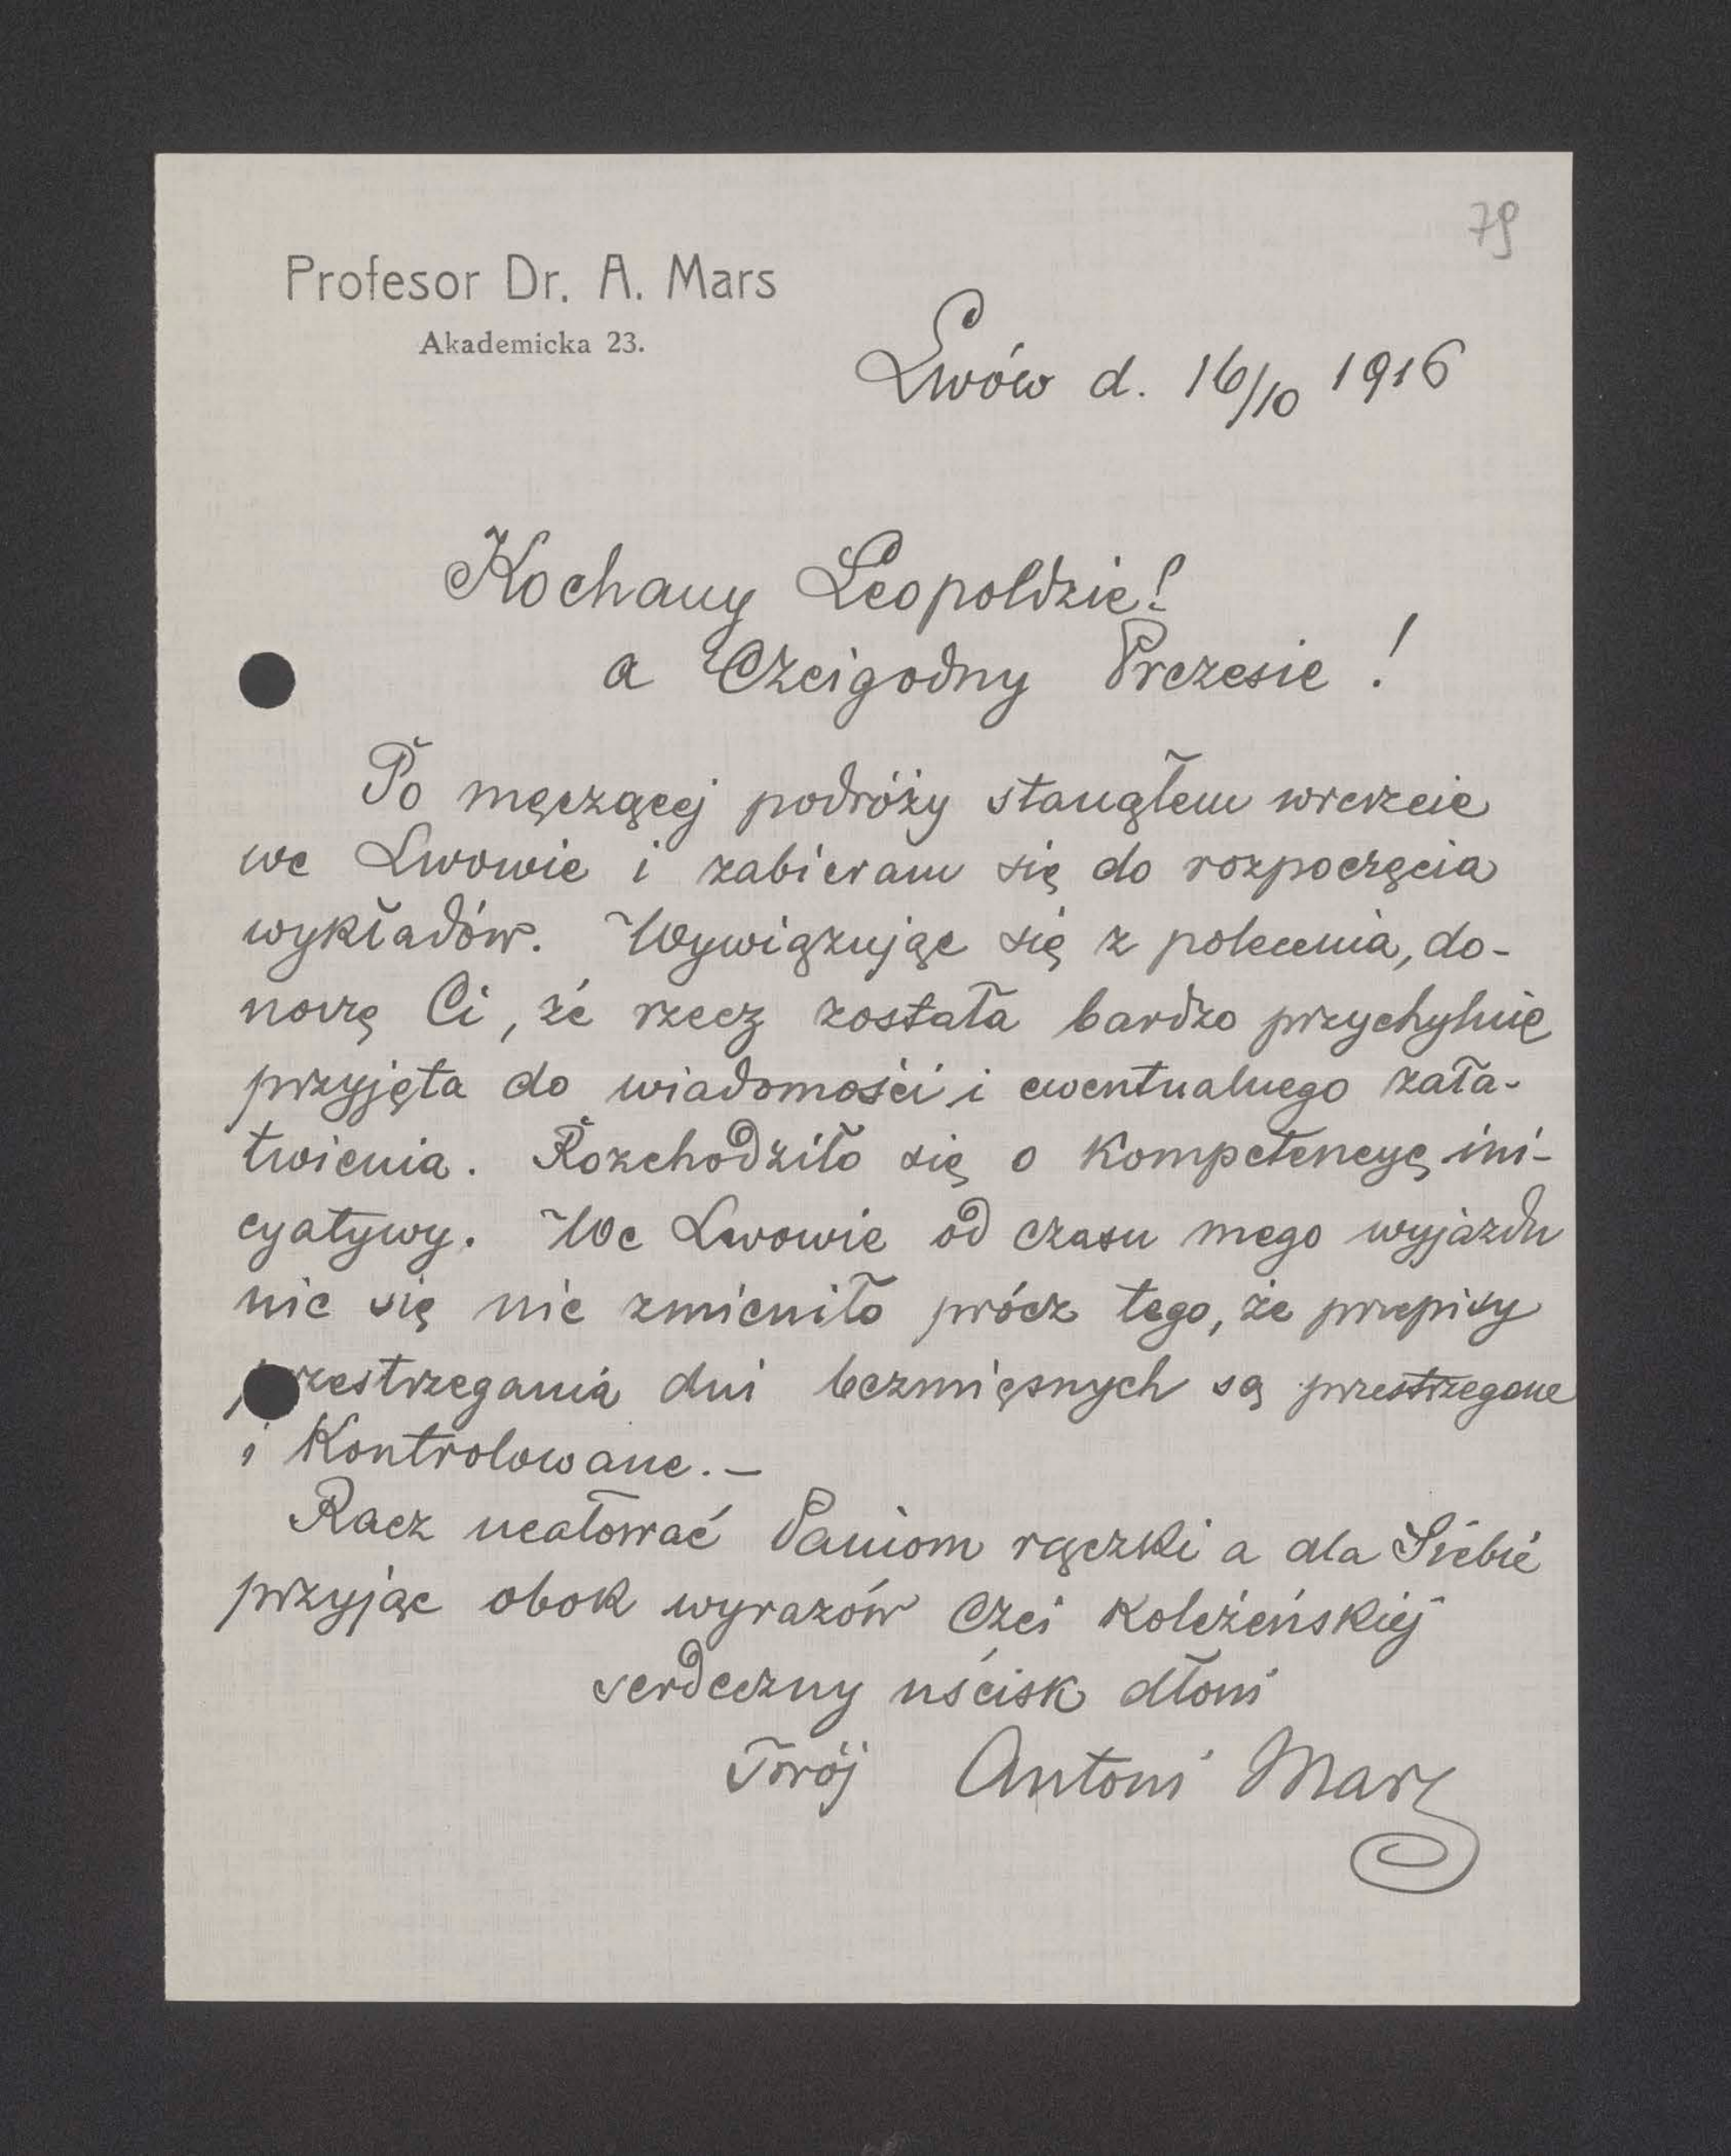 79
Profesor Dr. A. Mars
Akademicka 23.
Lwów d. 16/10 1916
Kochany Leopoldzie!
a Czcigodny Prezesie!
Po męczącej podróży stanąłem wreszcie
we Lwowie i zabieram się do rozpoczęcia
wykładów. Wywiązując się z polecenia, do-
noszę Ci, że rzecz została bardzo przychylnie
przyjęta do wiadomości i ewentualnego zała-
twienia. Rozchodziło się o kompetencyę ini-
cyatywy. We Lwowie od czasu mego wyjazdu
nic się nie zmieniło prócz tego, że przepisy
przestrzegania dni bezmięsnych są przestrzegane
i kontrolowane.—
Racz ucałować Paniom rączki a dla Siebie
przyjąć obok wyrazów czci koleżeńskiej
serdeczny uścisk dłoni
Twój Antoni Mars